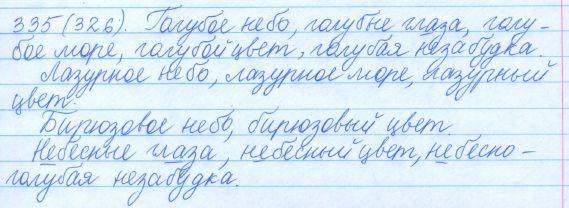 335(326). Голубое небо, голубые глаза, голу-
бое море, голубой цвет, голубая незабудка.
Лазурное небо, лазурное море, лазурный
цвет.
Бирюзовое небо, бирюзовый цвет.
Небесные глаза, небесный цвет, небесно-
голубая незабудка.